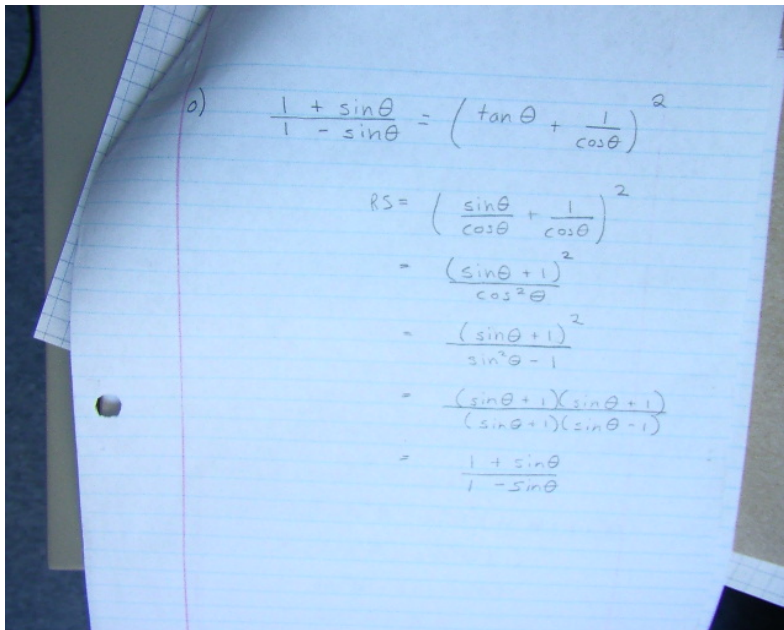 o) (1 + sinθ)/(1 - sinθ) = (tanθ + 1/cosθ)²
RS = (sinθ/cosθ + 1/cosθ)²
= (sinθ + 1)²/cos²θ
= (sinθ + 1)²/(sin²θ - 1)
= (sinθ + 1)(sinθ + 1)/(sinθ + 1)(sinθ - 1)
= (1 + sinθ)/(1 - sinθ)